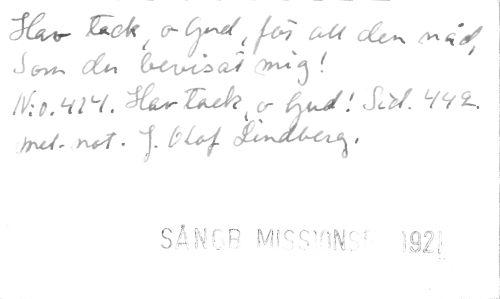 Hav tack, o Gud, för all den nåd,
Som du bevisat mig!
N:o. 414. Hav tack, o Gud! Sid. 442.
mel. not. J. Olof Lindberg.
SÅNGB MISSIONSF 192